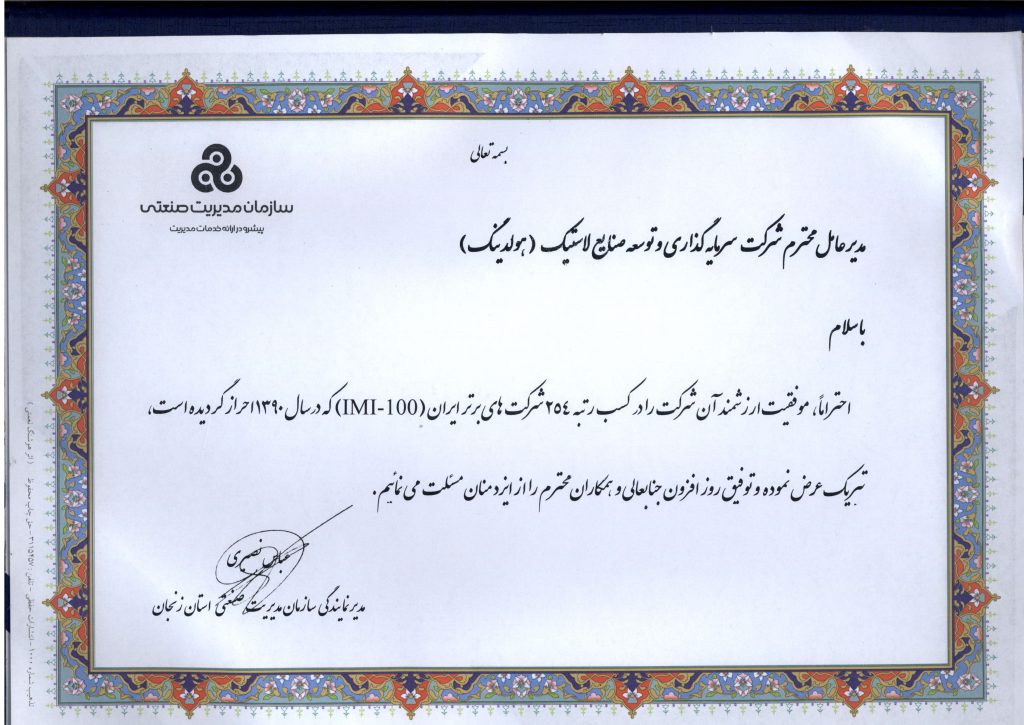 بسمه تعالی
سازمان مدیریت صنعتی
پیشرو در ارائه خدمات مدیریت
مدیر عامل محترم شرکت سرمایه گذاری و توسعه صنایع لاستیک (هولدینگ)
با سلام
احتراماً، موفقیت ارزشمند آن شرکت را در کسب رتبه ۲۵۴ شرکت های برتر ایران (IMI-100) که در سال ۱۳۹۰ احراز گردیده است،
تبریک عرض نموده و توفیق روز افزون جنابعالی و همکاران محترم را از ایزد منان مسئلت می نمائیم.
عباس نصیری
مدیر نمایندگی سازمان مدیریت صنعتی استان زنجان
تذهیب شماره ۱۰۰۰ - انتشارات حقیقی - تلفن: ۳۱۱۵۹۵۷ - حق چاپ محفوظ